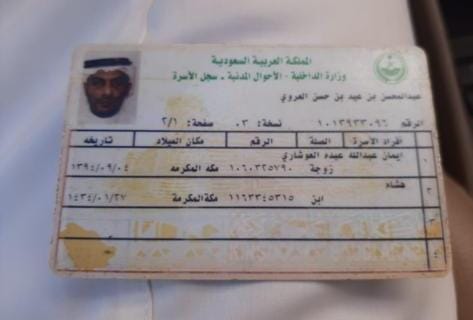 المملكة العربية السعودية
وزارة الداخلية - الأحوال المدنية - سجل الأسرة
عبدالمحسن بن عيد بن حسن العروي
الرقم ١٠١٣٩٣٣٠٩٦ نسخة: ٠٣ صفحة: ٢/١
افراد الأسرة الصلة الرقم مكان الميلاد تاريخه
١ ايمان عبدالله عبده العوشاري
زوجة ١٠٦٠٣٢٥٧٩٠ مكه المكرمه ١٣٩٤/٠٩/٠٤
٢ هشام
ابن ١١٦٣٣٤٥٣١٥ مكة المكرمة ١٤٣٤/٠١/٢٧
٣
٤